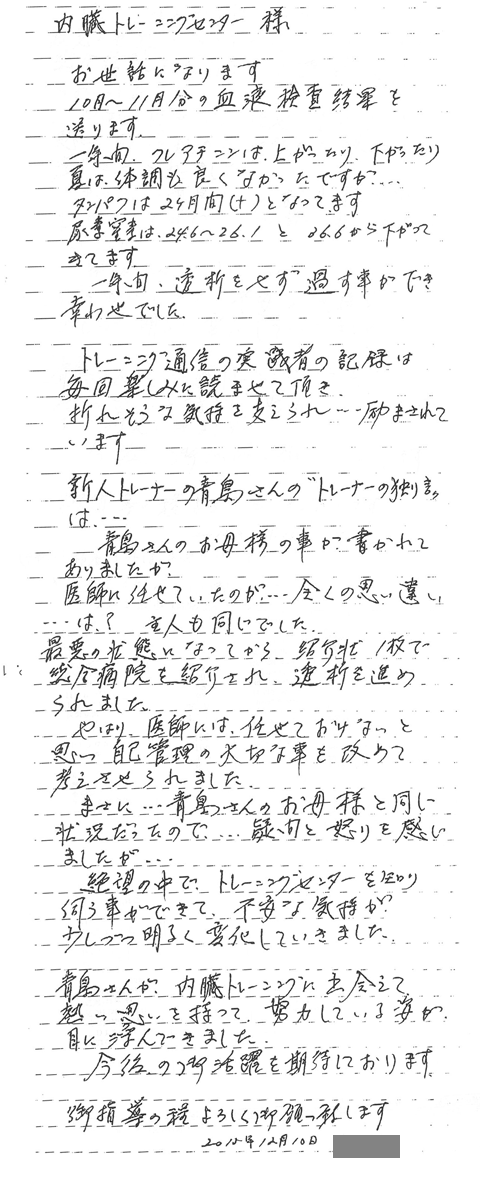 内臓トレーニングセンター 様
お世話になります
10月～11月分の血液検査結果を
送ります.
一年間、クレアチニンは、上がったり、下がったり
夏は、体調も良くなかったですが…
タンパクは2ヶ月間(+)となってます
尿素窒素は、24.6～26.1 と 26.6から下がって
きてます
一年間、透析をせず過す事ができ
幸わせでした.
トレーニング通信の実践者の記録は
毎回楽しみに読ませて頂き、
折れそうな気持を支えられ…励まされて
います
新人トレーナーの青島さんの"トレーナーの独り言"
は、…
青島さんのお母様の事が書かれて
ありましたが、
医師に任せていたのが…全くの思い違い
…は、? 主人も同じでした.
最悪の状態になってから、紹介状1枚で
総合病院を紹介され、透析を進め
られました
やはり、医師には、任せておけないと
思い 自己管理の大切な事を改めて
考えさせられました.
まさに…青島さんのお母様と同じ
状況だったので、…疑問と怒りを感じ
ましたが…
絶望の中で、トレーニングセンターを知り
伺う事ができて、不安な気持が
少しづつ明るく変化していきました.
青島さんが、内臓トレーニングに出会えて
熱い思いを持って、努力している姿が、
目に浮んできました.
今後の御活躍を期待しております.
御指導の程よろしく御願い致します
2015年12月10日